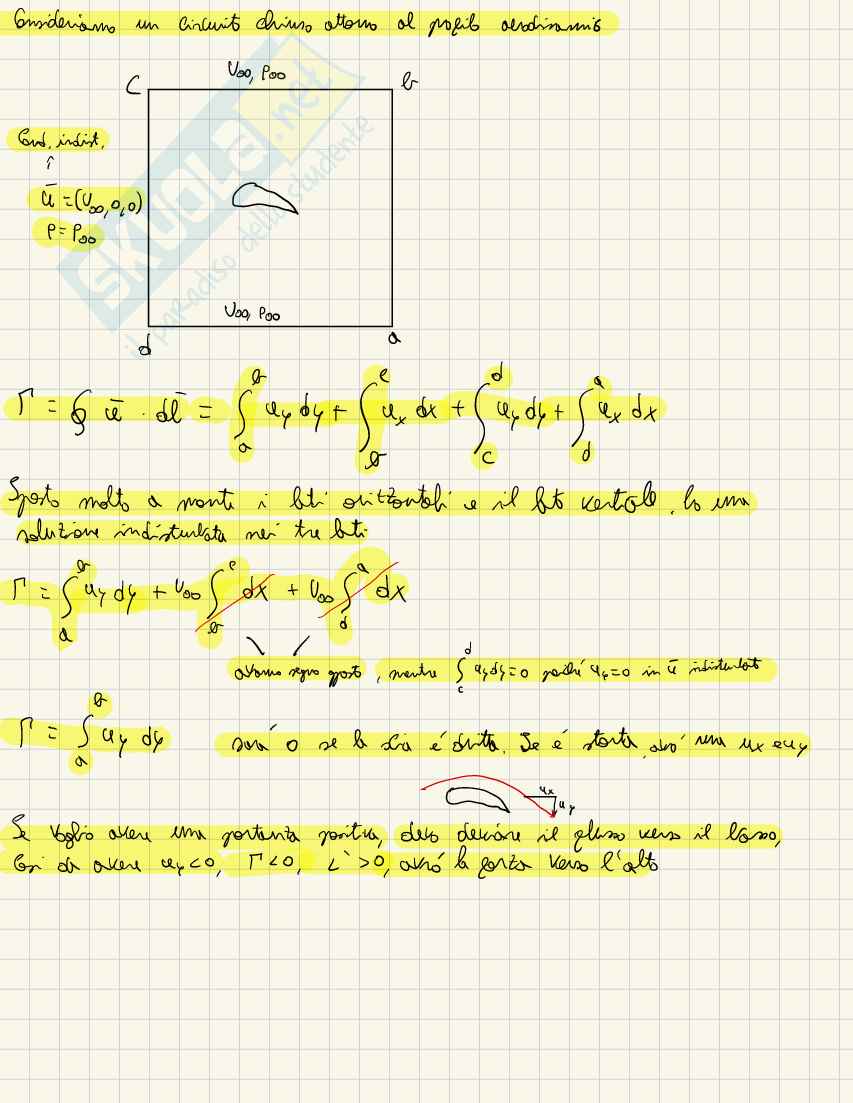 Consideriamo un circuito chiuso attorno al profilo aerodinamico
U∞, P∞
c
b
Cond. indist.
ū = (U∞, 0, 0)
P = P∞
SKUOLA.net
il paradiso dello studente
U∞, P∞
d
a
Γ = ∮ ū · dl̄ = ∫_a^b u_y dy + ∫_b^c u_x dx + ∫_c^d u_y dy + ∫_d^a u_x dx
Sposto molto a monte i lati orizzontali e il lato verticale, ho una
soluzione indisturbata nei tre lati
Γ = ∫_a^b u_y dy + U∞ ∫_b^c dx + U∞ ∫_d^a dx
avranno segno opposto, mentre ∫_c^d u_y dy = 0 poiché u_y = 0 in ū indisturbato
Γ = ∫_a^b u_y dy sarà 0 se la scia è dritta. Se è storta, avrò una ux e uy
ux
uy
Se voglio avere una portanza positiva, devo deviare il flusso verso il basso,
così da avere u_y < 0, Γ < 0, L' > 0, avrò la forza verso l'alto